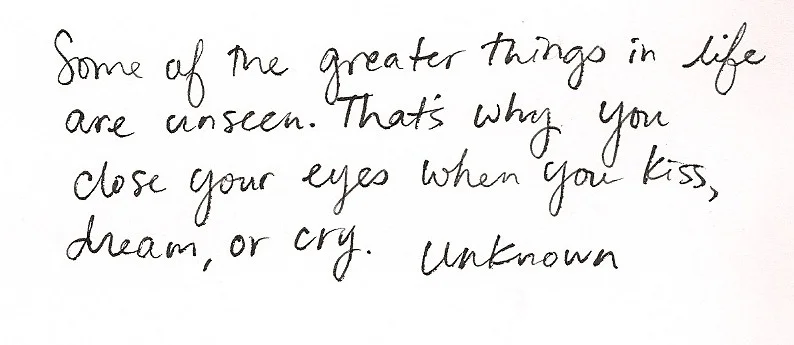 Some of the greater things in life
are unseen. That's why you
close your eyes when you kiss,
dream, or cry. Unknown